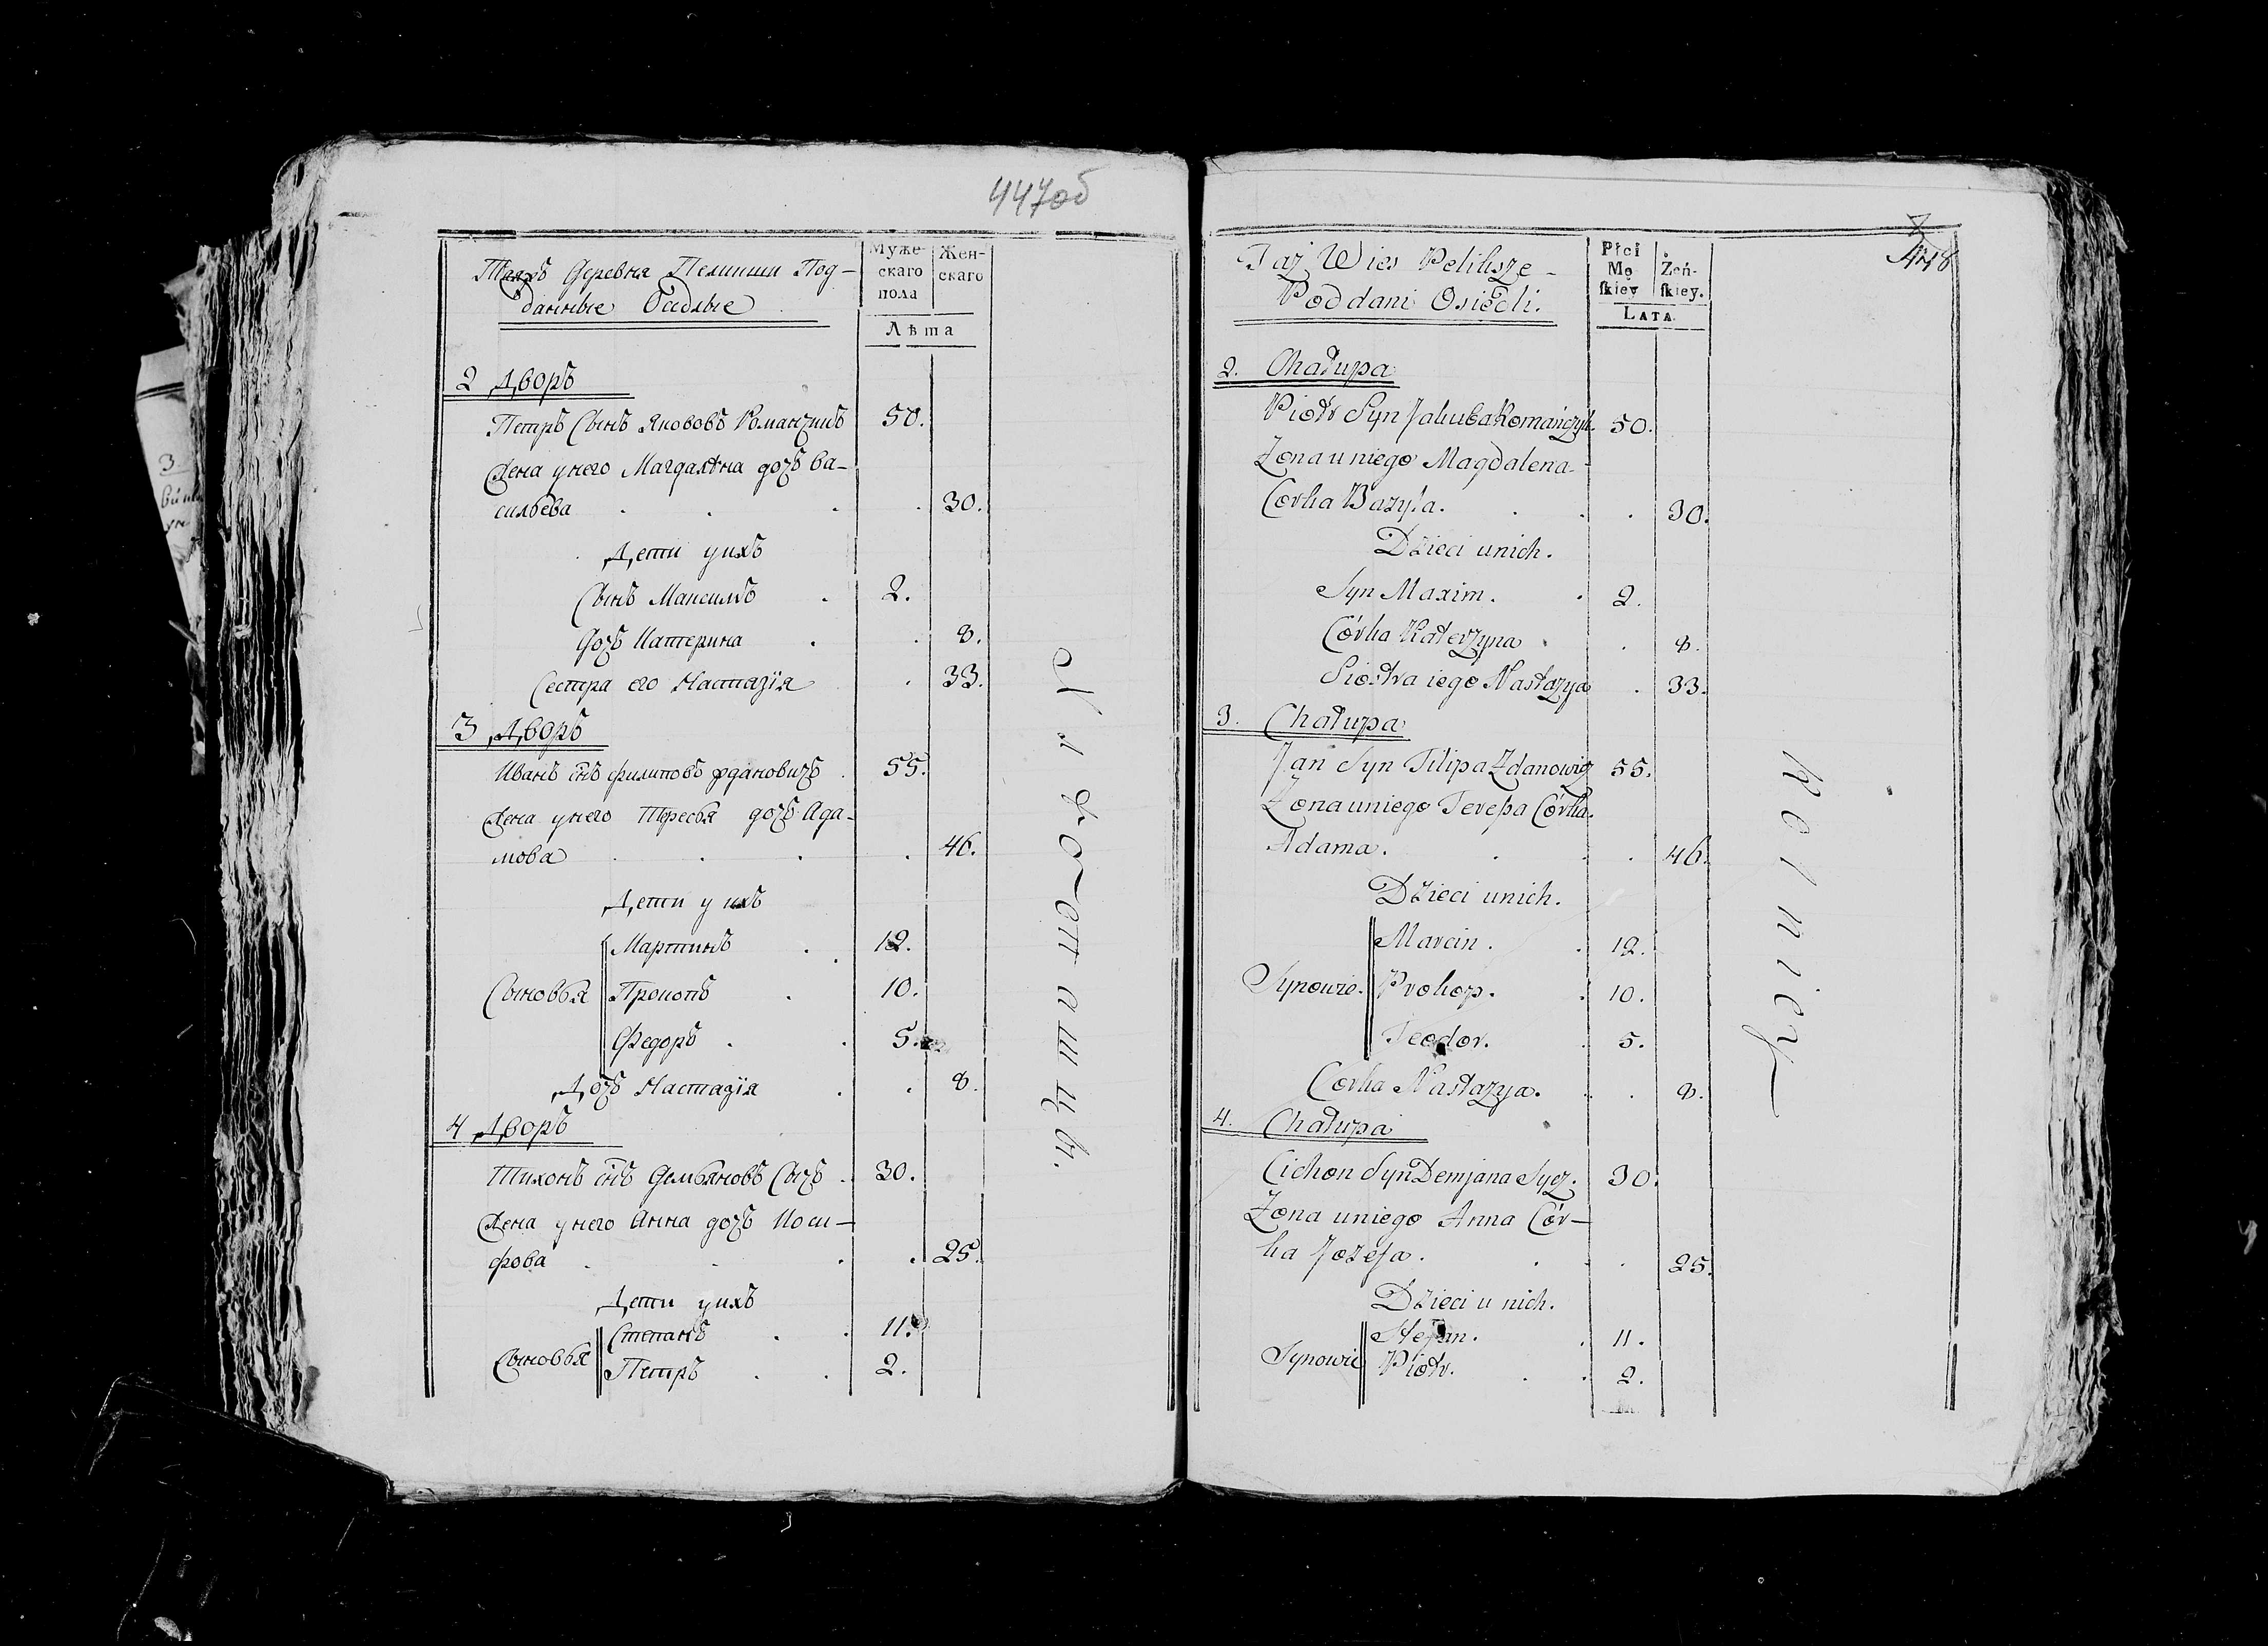 447об
Таяжъ Деревня Пелищи Под-
данные Осѣдлые
Муже-
скаго
пола
Жен-
скаго
Лѣта
2 Дворъ
Петръ Сынъ Якововъ Романчикъ 50.
Жена у него Магдалена дочь Ва-
сильева . . . . 30.
Дети у ихъ
Сынъ Максимъ . 2.
Дочь Катерина . . 8.
Сестра его Настазія . 33.
3 Дворъ
Иванъ сн̃ъ Филиповъ Ждановичъ . 55.
Жена у него Тересья дочь Ада-
мова . . . . 46.
Дети у ихъ
Сыновья
Мартинъ . 12.
Прокопъ . 10.
Федоръ . . 5.
Дочь Настазія . . 8.
4 Дворъ
Тихонъ сн̃ъ Демьяновъ Сычъ . 30.
Жена у него Анна дочь Иоси-
фова . . . . 25.
Дети у ихъ
Сыновья
Степанъ . . 11.
Петръ . . 2.
448
Taż Wieś Peliksze-
Poddani Osiedli.
Płci
Mę
ſkiey
Żeń-
ſkiey.
LATA
2. Chałupa
Piotr Syn Jakuba Romańczyk 50.
Żona u niego Magdalena-
Corka Bazyla. . . . 30.
Dzieci unich.
Syn Maxim. . 2.
Córka Katerzyna . . 8.
Siostra iego Nastazya . 33.
3. Chałupa
Jan Syn Filipa Zdanowicz 55.
Żona uniego Teressa Córka-
Adama. . . . 46.
Dzieci unich.
Synowie.
Marcin. . 12.
Prokop. . 10.
Teodor. . 5.
Corka Nastazya. . . 8.
4. Chałupa
Cichon Syn Demjana Sycz. 30.
Żona uniego Anna Cór-
ka Jozefa. . . . 25.
Dzieci u nich.
Synowie
Stefan. . 11.
Piotr. . . 2.
Rolnicy